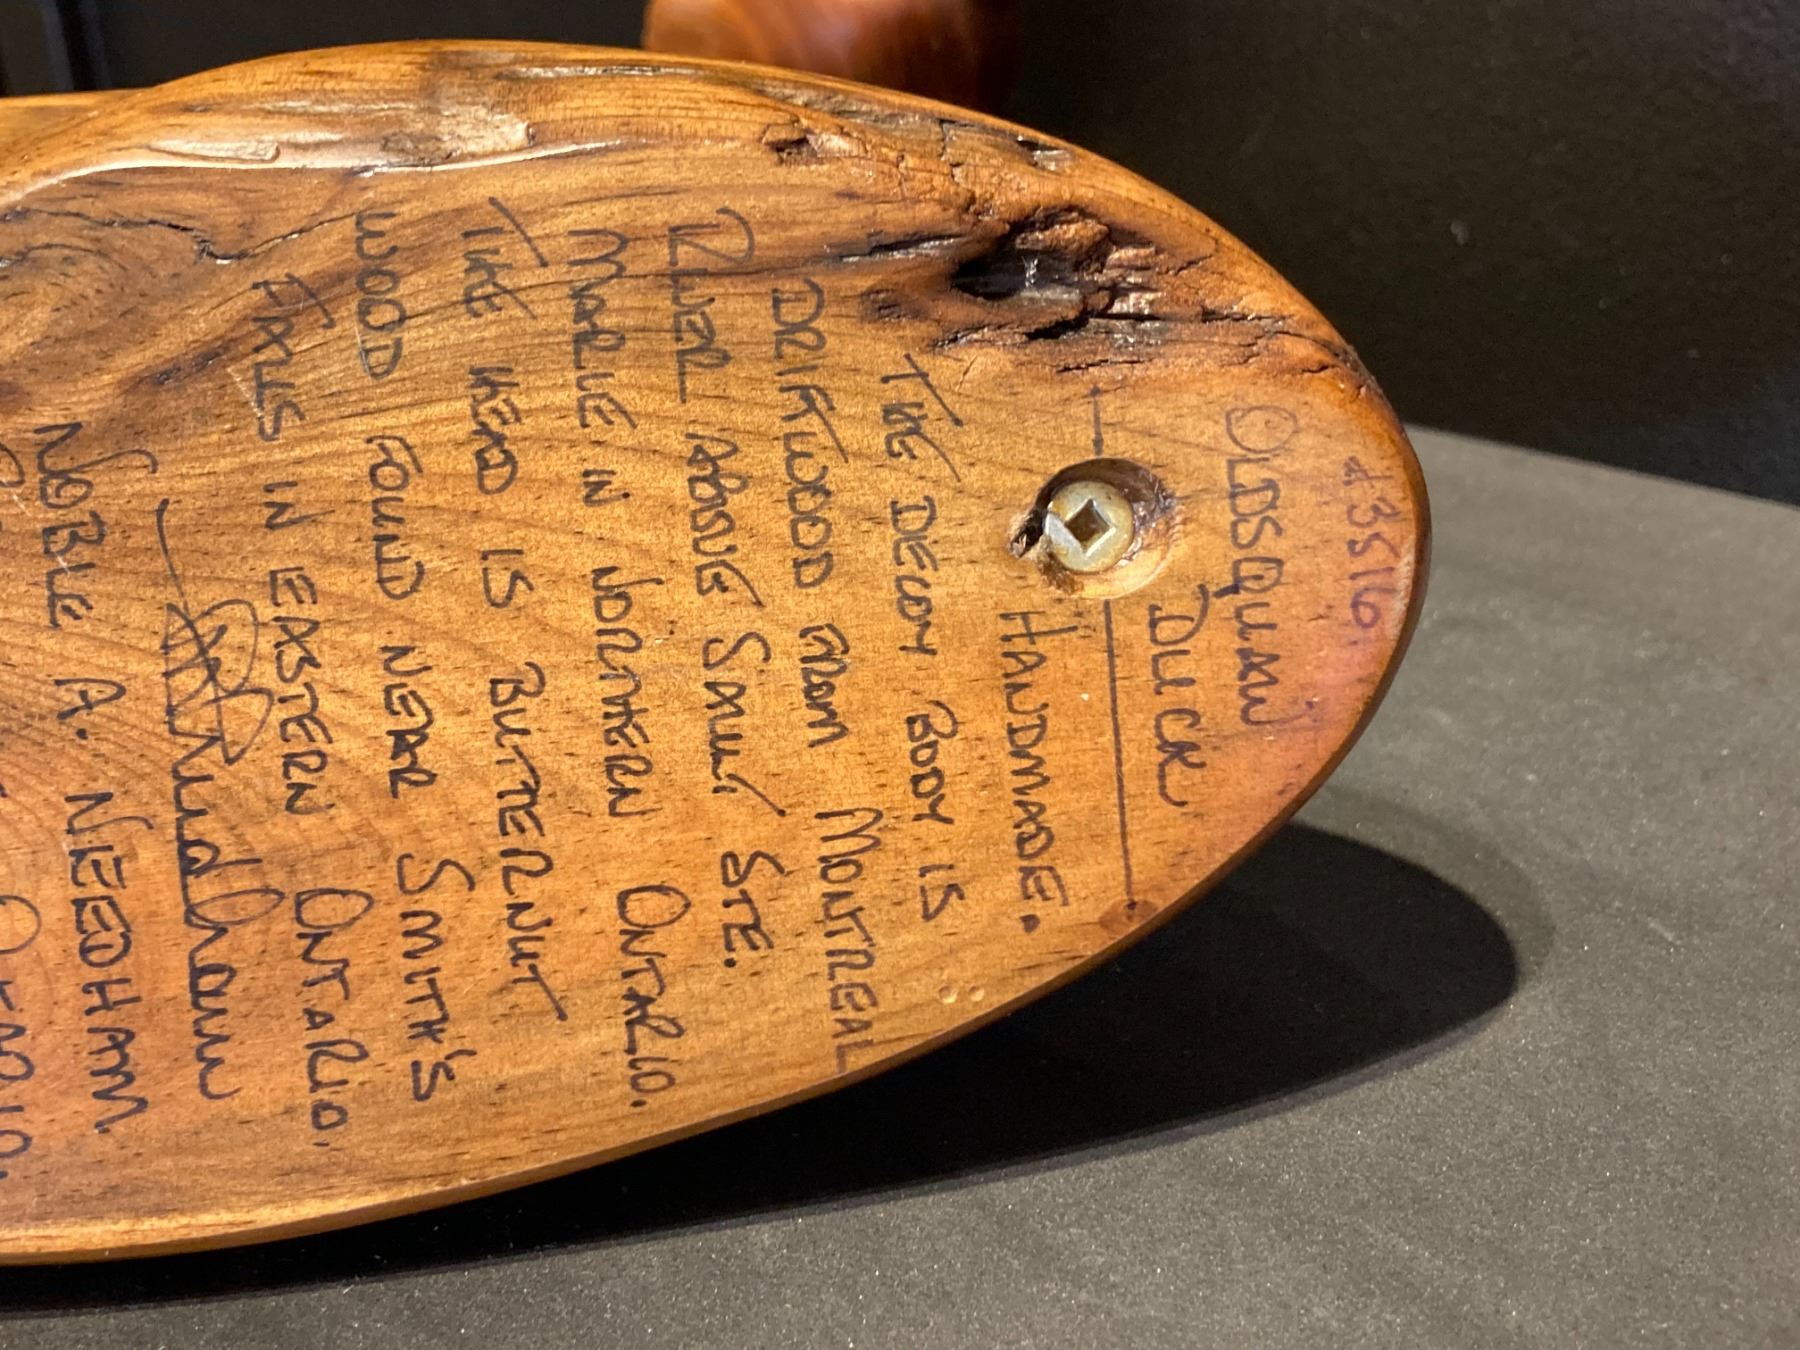 #3516.
OLDSQUAW
DUCK
HANDMADE.
THE DECOY BODY IS
DRIFTWOOD FROM MONTREAL
RIVER ABOVE SAULT STE.
MARIE IN NORTHERN ONTARIO.
THE HEAD IS BUTTERNUT
WOOD FOUND NEAR SMITH'S
FALLS IN EASTERN ONTARIO.
Needham
NOBLE A. NEEDHAM.